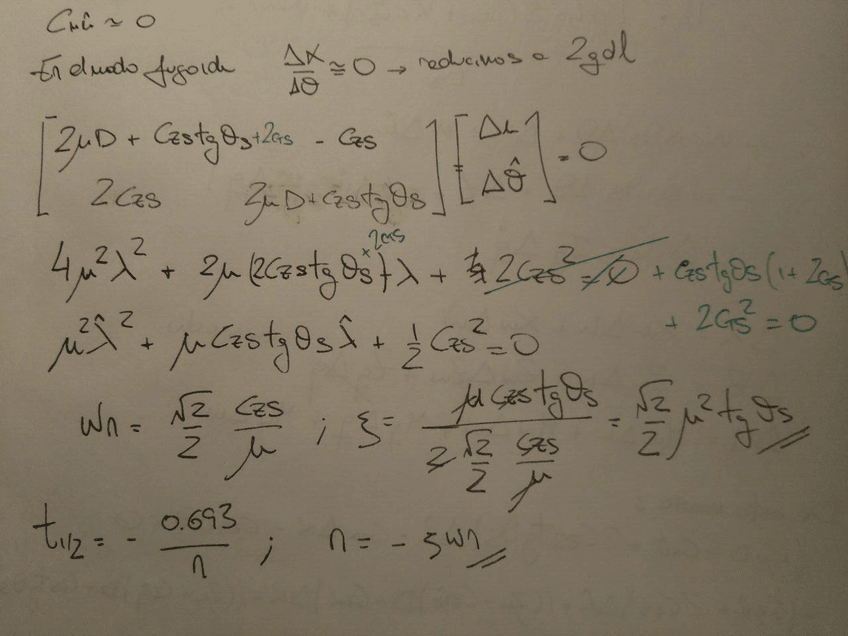 En el modo fugoide Δα/Δθ ≅ 0 → reducimos a 2gdl
[2μD + Czstgθs+2Czs - Czs] [Δu] = 0
[2Czs 2μD+Czstgθs] [Δθ̂]
4μ²λ² + 2μ(2Czstgθs)λ + 2Czs² = 0 + Czstgθs(1+2Czs)
+ 2Czs² = 0
μ²λ̂² + μCzstgθsλ̂ + 1/2 Czs² = 0
Wn = √2/2 Czs/μ ; ξ = μCzstgθs / (2 √2/2 Czs/μ) = √2/2 μ²tgθs
t1/2 = - 0.693/n ; n = - ξWn